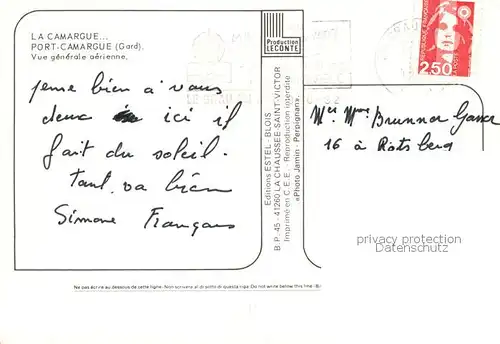 LA CAMARGUE...
PORT-CAMARGUE (Gard).
Vue générale aérienne.
pense bien à vous
deux ici il
fait du soleil.
Tout va bien
Simone François
Production
LECONTE
Editions ESTEL - BLOIS
B.P. 45 - 41260 LA CHAUSSÉE-SAINT-VICTOR
Imprimé en C.E.E. - Reproduction interdite
«Photo Jamin - Perpignan»
REPUBLIQUE FRANÇAISE
2,50
LA POSTE
Mr Mme Brunner Gasser
16 à Rotsberg
privacy protection
Datenschutz
Ne pas écrire au dessous de cette ligne. Non scrivere al di sotto di questa riga. Do not write below this line